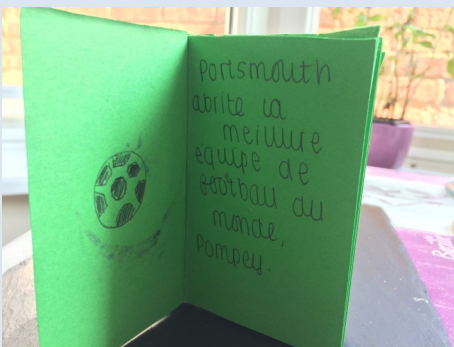 Portsmouth
abrite la
meilleure
equipe de
football du
monde,
Pompey.